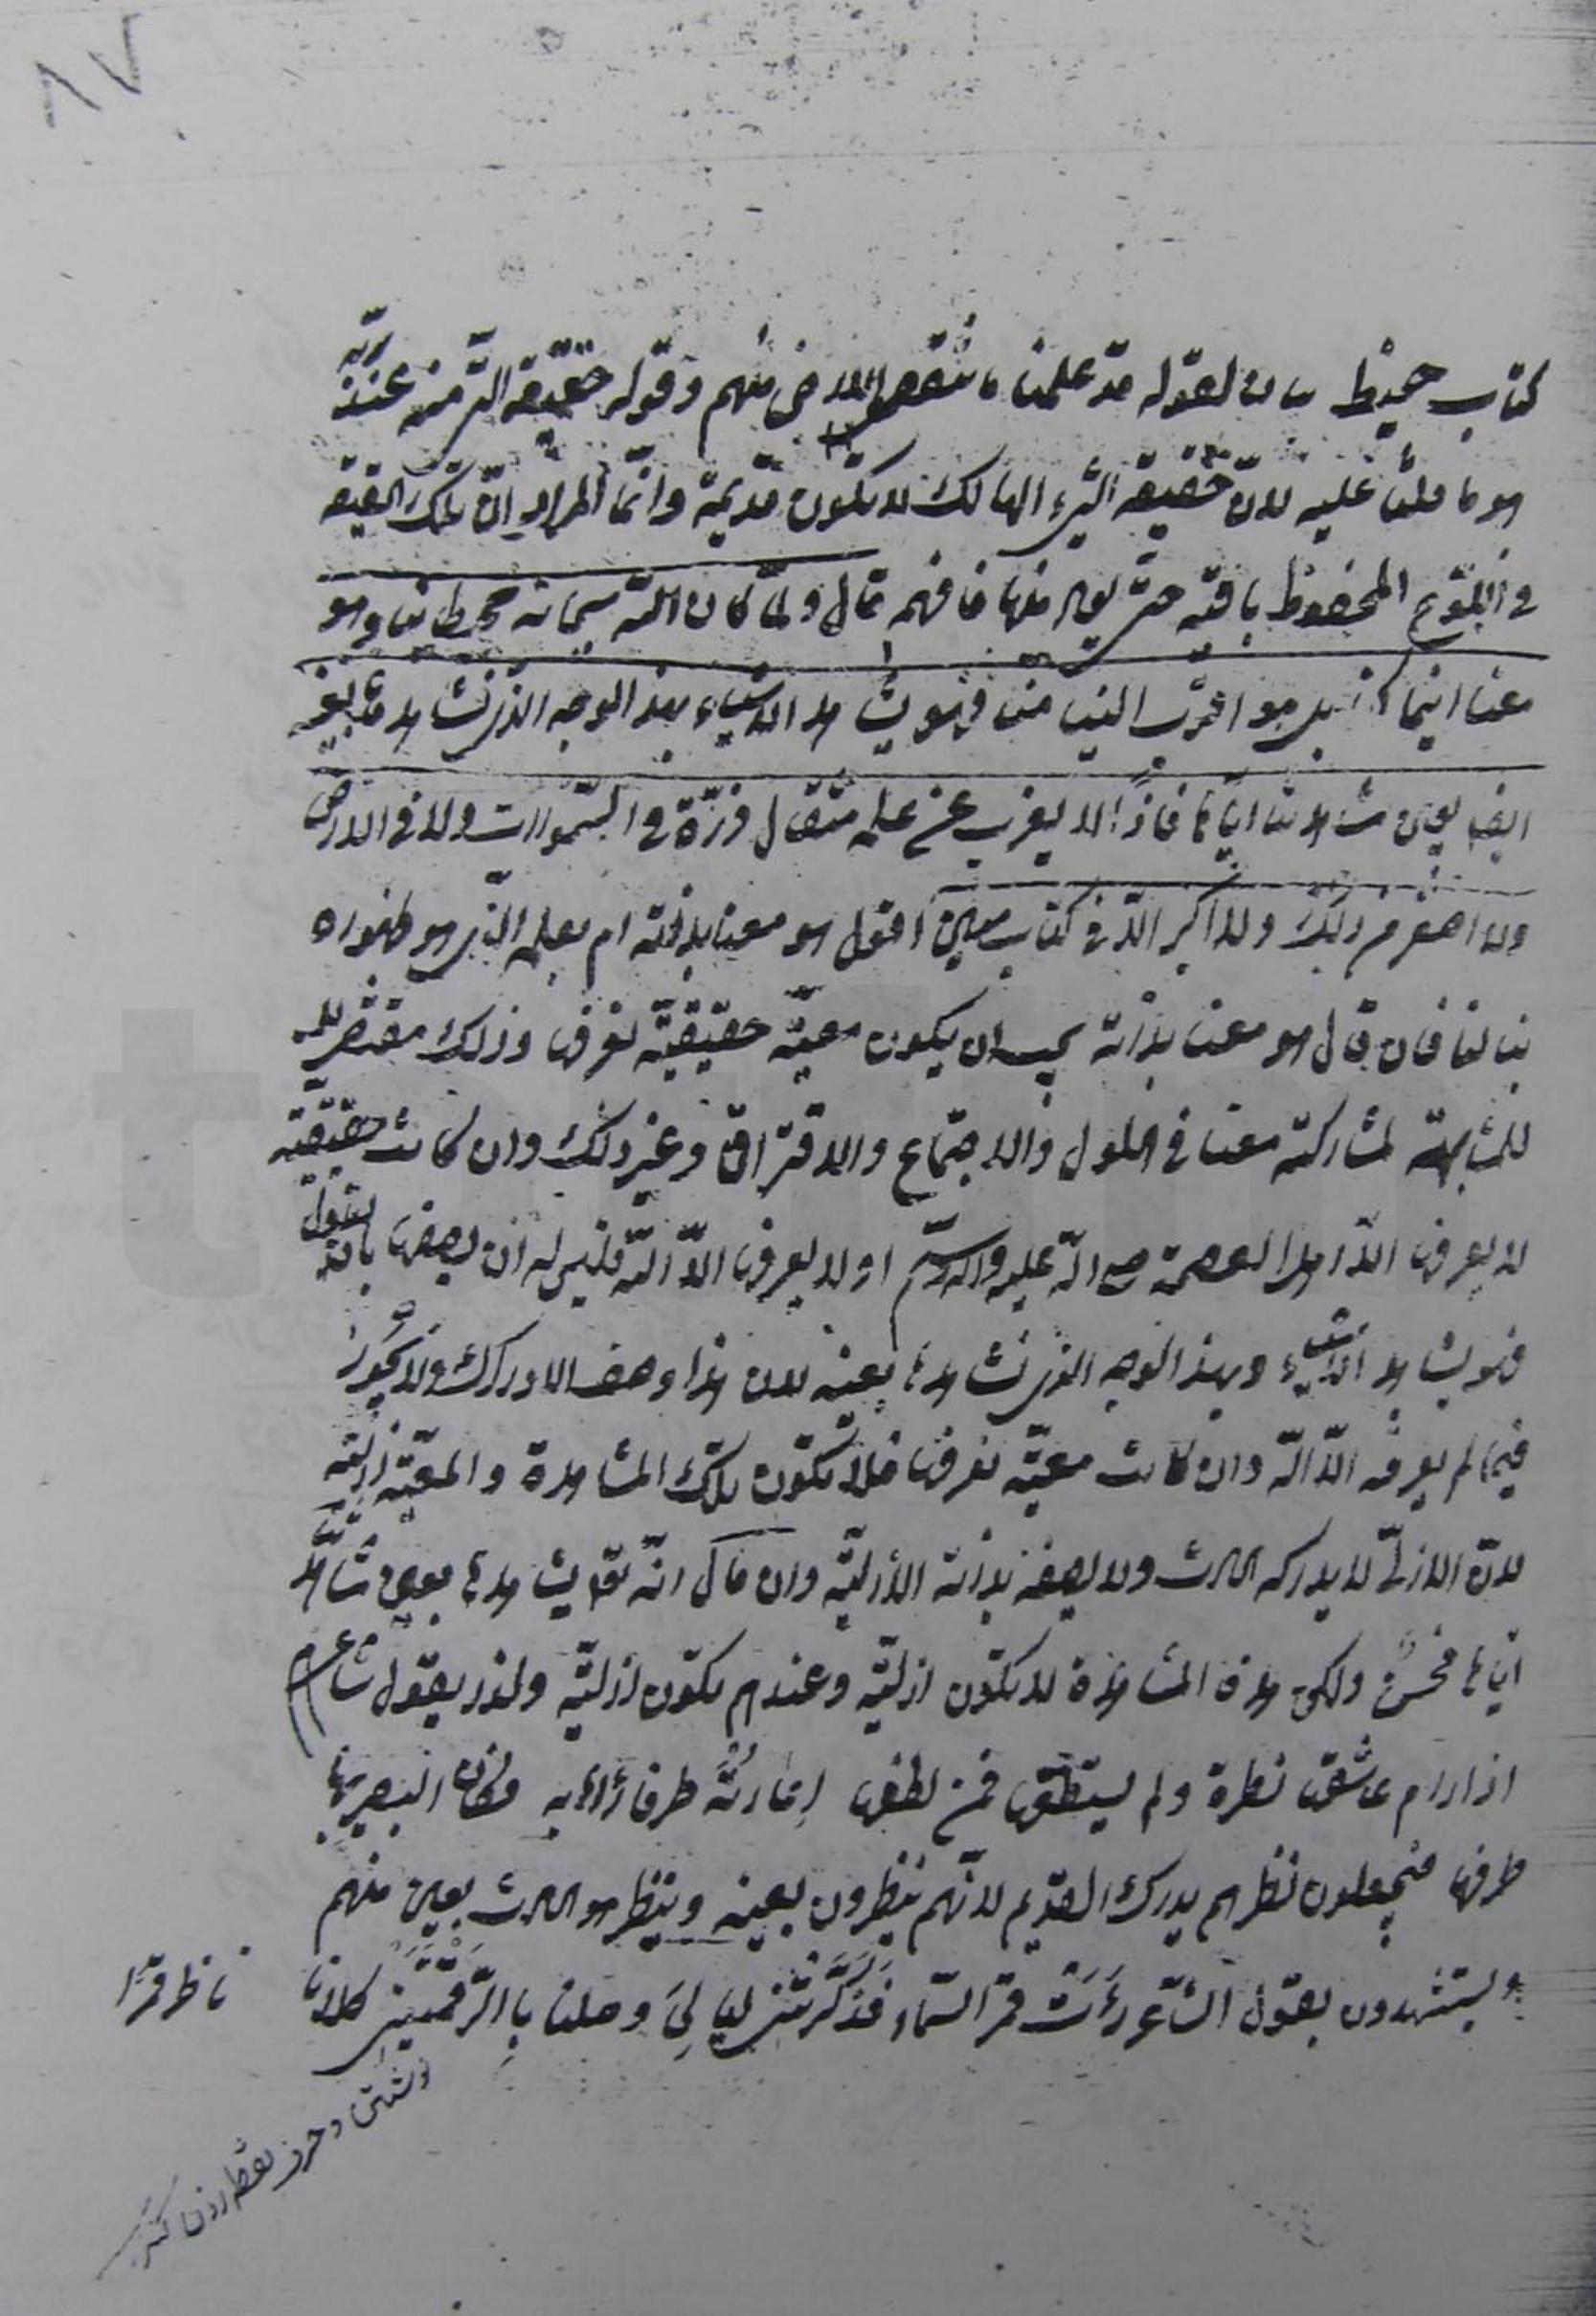 ٨٧
كتاب حفيظ بيان لقوله قد علمنا ما تنقص الارض منهم وقوله حقيقة التي منه عند ربّه
هو ما قلنا عليه لانّ حقيقة الشيء الهالك لا تكون قديمة وانّما المراد انّ تلك الحقيقة
في اللّوح المحفوظ باقية حتّى يعاد منها فافهم قال ولمّا كان اللّه سبحانه محيطا بنا وهو
معنا اينما كنا بل هو اقرب الينا منا فهو يشاهد الاشياء بهذا الوجه الذي نشاهدها بعينه
ايضا بعين مشاهدتنا ايّاها فاذاً لا يعزب عن علمه مثقال ذرّة في السّموات ولا في الارض
ولا اصغر من ذلك ولا اكبر الّا في كتاب مبين اقول هو معنا بذاته ام بعلمه الّذي هو ظهوره
بنا لنا فان قال هو معنا بذاته يجب ان يكون معيّة حقيقيّة نعرفها وذلك مقتض
للمشابهة لمشاركته معنا في الحلول والاجتماع والافتراق وغير ذلك وان كانت حقيقيّة
لا يعرفها الّا اهل العصمة صلى اللّه عليه وآله وسلّم او لا يعرفها الّا اللّه فليس له ان يصفها بان يقول
فهو يشاهد الاشياء وبهذا الوجه الذي نشاهدها بعينه لان هذا وصف الادراك ولا يجوز
فيما لم يعرفه الّا اللّه وان كانت معيّة نعرفها فلا تكون تلك المشاهدة والمعيّة ازليّة
لانّ الازليّ لا يدركه الحادث ولا يصفه بذاته الأزليّة وان قال انّه تعالى يشاهدها بعين مشاهدتنا
ايّاها فحسن ولكن هذه المشاهدة لا تكون ازليّة وعندهم تكون ازليّة ولذا يقول شاعرهم
اذا رام عاشقها نظرة ولم يستطعها فمن لطفها اعارته طرفا رآها به فكان البصير بها
طرفها فيجعلون نظرهم يدرك القديم لانّهم ينظرون بعينه وينظر هو الحادث بعين منهم
ويستشهدون بقول الشّاعر رَأَتْ قمرَ السّماء فذَكّرَتْني لياليَ وصلنا بالرّقمتين كلانا
ناظر قمرًا